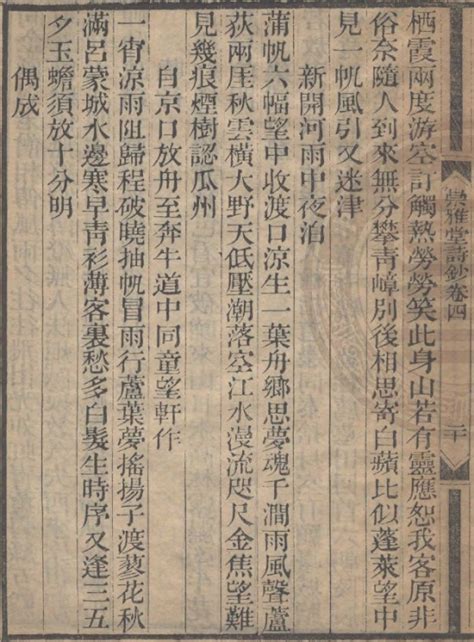 崇雅堂詩鈔卷四
二十
栖霞兩度游空訂觸熱勞勞笑此身山若有靈應恕我客原非
俗奈隨人到來無分攀青嶂別後相思寄白蘋比似蓬萊望中
見一帆風引又迷津
新開河雨中夜泊
蒲帆六幅望中收渡口涼生一葉舟鄉思夢魂千澗雨風聲蘆
荻兩厓秋雲橫大野天低壓潮落空江水漫流咫尺金焦望難
見幾痕煙樹認瓜州
自京口放舟至奔牛道中同童望軒作
一宵涼雨阻歸程破曉抽帆冒雨行蘆葉夢搖揚子渡蓼花秋
滿呂蒙城水邊寒早青衫薄客裏愁多白髮生時序又逢三五
夕玉蟾須放十分明
偶成